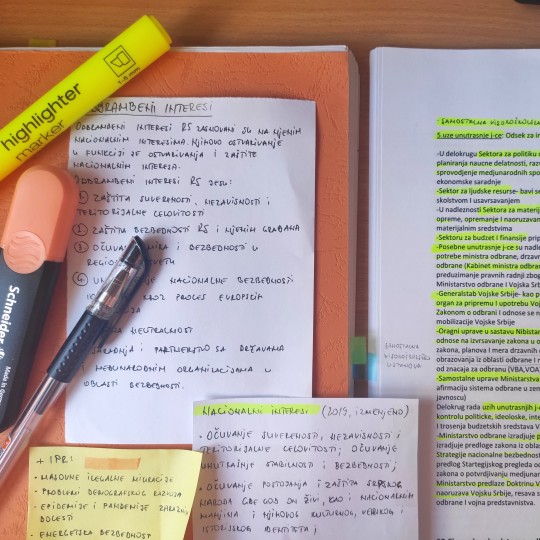 highlighter
marker
1-5 mm
Schneider
Made in Ger
ODBRAMBENI INTERESI
ODBRAMBENI INTERESI RS ZASNOVANI SU NA NJENIM
NACIONALNIM INTERESIMA. NJIHOVO OSTVARIVANJE
U FUNKCIJI JE OSTVARIVANJA I ZAŠTITE
NACIONALNIH INTERESA.
ODBRAMBENI INTERESI RS JESU:
① ZAŠTITA SUVERENOSTI, NEZAVISNOSTI I
TERITORIJALNE CELOVITOSTI
② ZAŠTITA BEZBEDNOSTI RS I NJENIH GRAĐANA
③ OČUVANJE MIRA I BEZBEDNOSTI U
REGIONU SVETU
④ NACIONALNE BEZBEDNOSTI
KROZ PROCES EVROPSKIH
NEUTRALNOST
SARADNJA I PARTNERSTVO SA DRŽAVAMA
I MEĐUNARODNIM ORGANIZACIJAMA U
OBLASTI BEZBEDNOSTI.
NACIONALNI INTERESI (2019, IZMENJENO)
• OČUVANJE SUVERENOSTI, NEZAVISNOSTI I
TERITORIJALNE CELOVITOSTI; OČUVANJE
UNUTRAŠNJE STABILNOSTI I BEZBEDNOSTI;
• OČUVANJE POSTOJANJA I ZAŠTITA SRPSKOG
NARODA GDE GOD ON ŽIVI, KAO I NACIONALNIH
MANJINA I NJIHOVOG KULTURNOG, VERSKOG I
ISTORIJSKOG IDENTITETA;
+ IPR:
• MASOVNE ILEGALNE MIGRACIJE
• PROBLEMI DEMOGRAFSKOG RAZVOJA
• EPIDEMIJE I PANDEMIJE ZARAZNIH
BOLESTI
• ENERGETSKA BEZBEDNOST
SAMOSTALNA
VISOKOŠKOLSKA
USTANOVA
-SAMOSTALNA VISOKOŠKOLSKA
5.uze unutrasnje j-ce: Odsek za in
-U delokrugu Sektora za politiku o
planiranja naucne delatnosti, razv
sprovodjenje medjunarodnih spo
ekonomske saradnje
-Sektor za ljudske resurse- bavi se
skolstvom I usavrsavanjem
-U nadleznosti Sektora za materija
opreme, opremanje I naoruzavan
materijalnim sredstvima
-Sektoru za budzet I finansije prip
-Posebne unutrasnje j-ce su nadle
potrebe ministra odbrane, drzavn
odbrane (Kabinet ministra odbran
preduzimanje pravnih radnji zbog
Ministarstvo odbrane I Vojska Srb
-Generalstab Vojske Srbije- kao
organ za pripremu I upotrebu Voj
Zakonom o odbrani I odnose se n
mobilizacije Vojske Srbije
-Oragni uprave u sastavu Ministar
odnose na izvrsavanje zakona u o
zakona, planova I mera drzavnih o
obrazovanja iz oblasti odbrane I n
od znacaja za odbranu (VBA,VOA)
-Samostalne uprave Ministarstva
afirmaciju sistema odbrane u zem
javnoscu)
Delokrug rada uzih unutrasnjih j-c
kontrolu politicke, ideoloske, inte
I trosenja budzetskih sredstava V
-Ministarstvo odbrane izradjuje p
izradjuje predloge zakona iz oblas
Strategije nacionalne bezbednost
predlog Startegijskog pregleda oc
zakona o potvrdjivanju medjunar
Ministarstvo predlaze Doktrinu V
naoruzava Vojsku Srbije, resava s
odbrane I vojna predstavnistva.